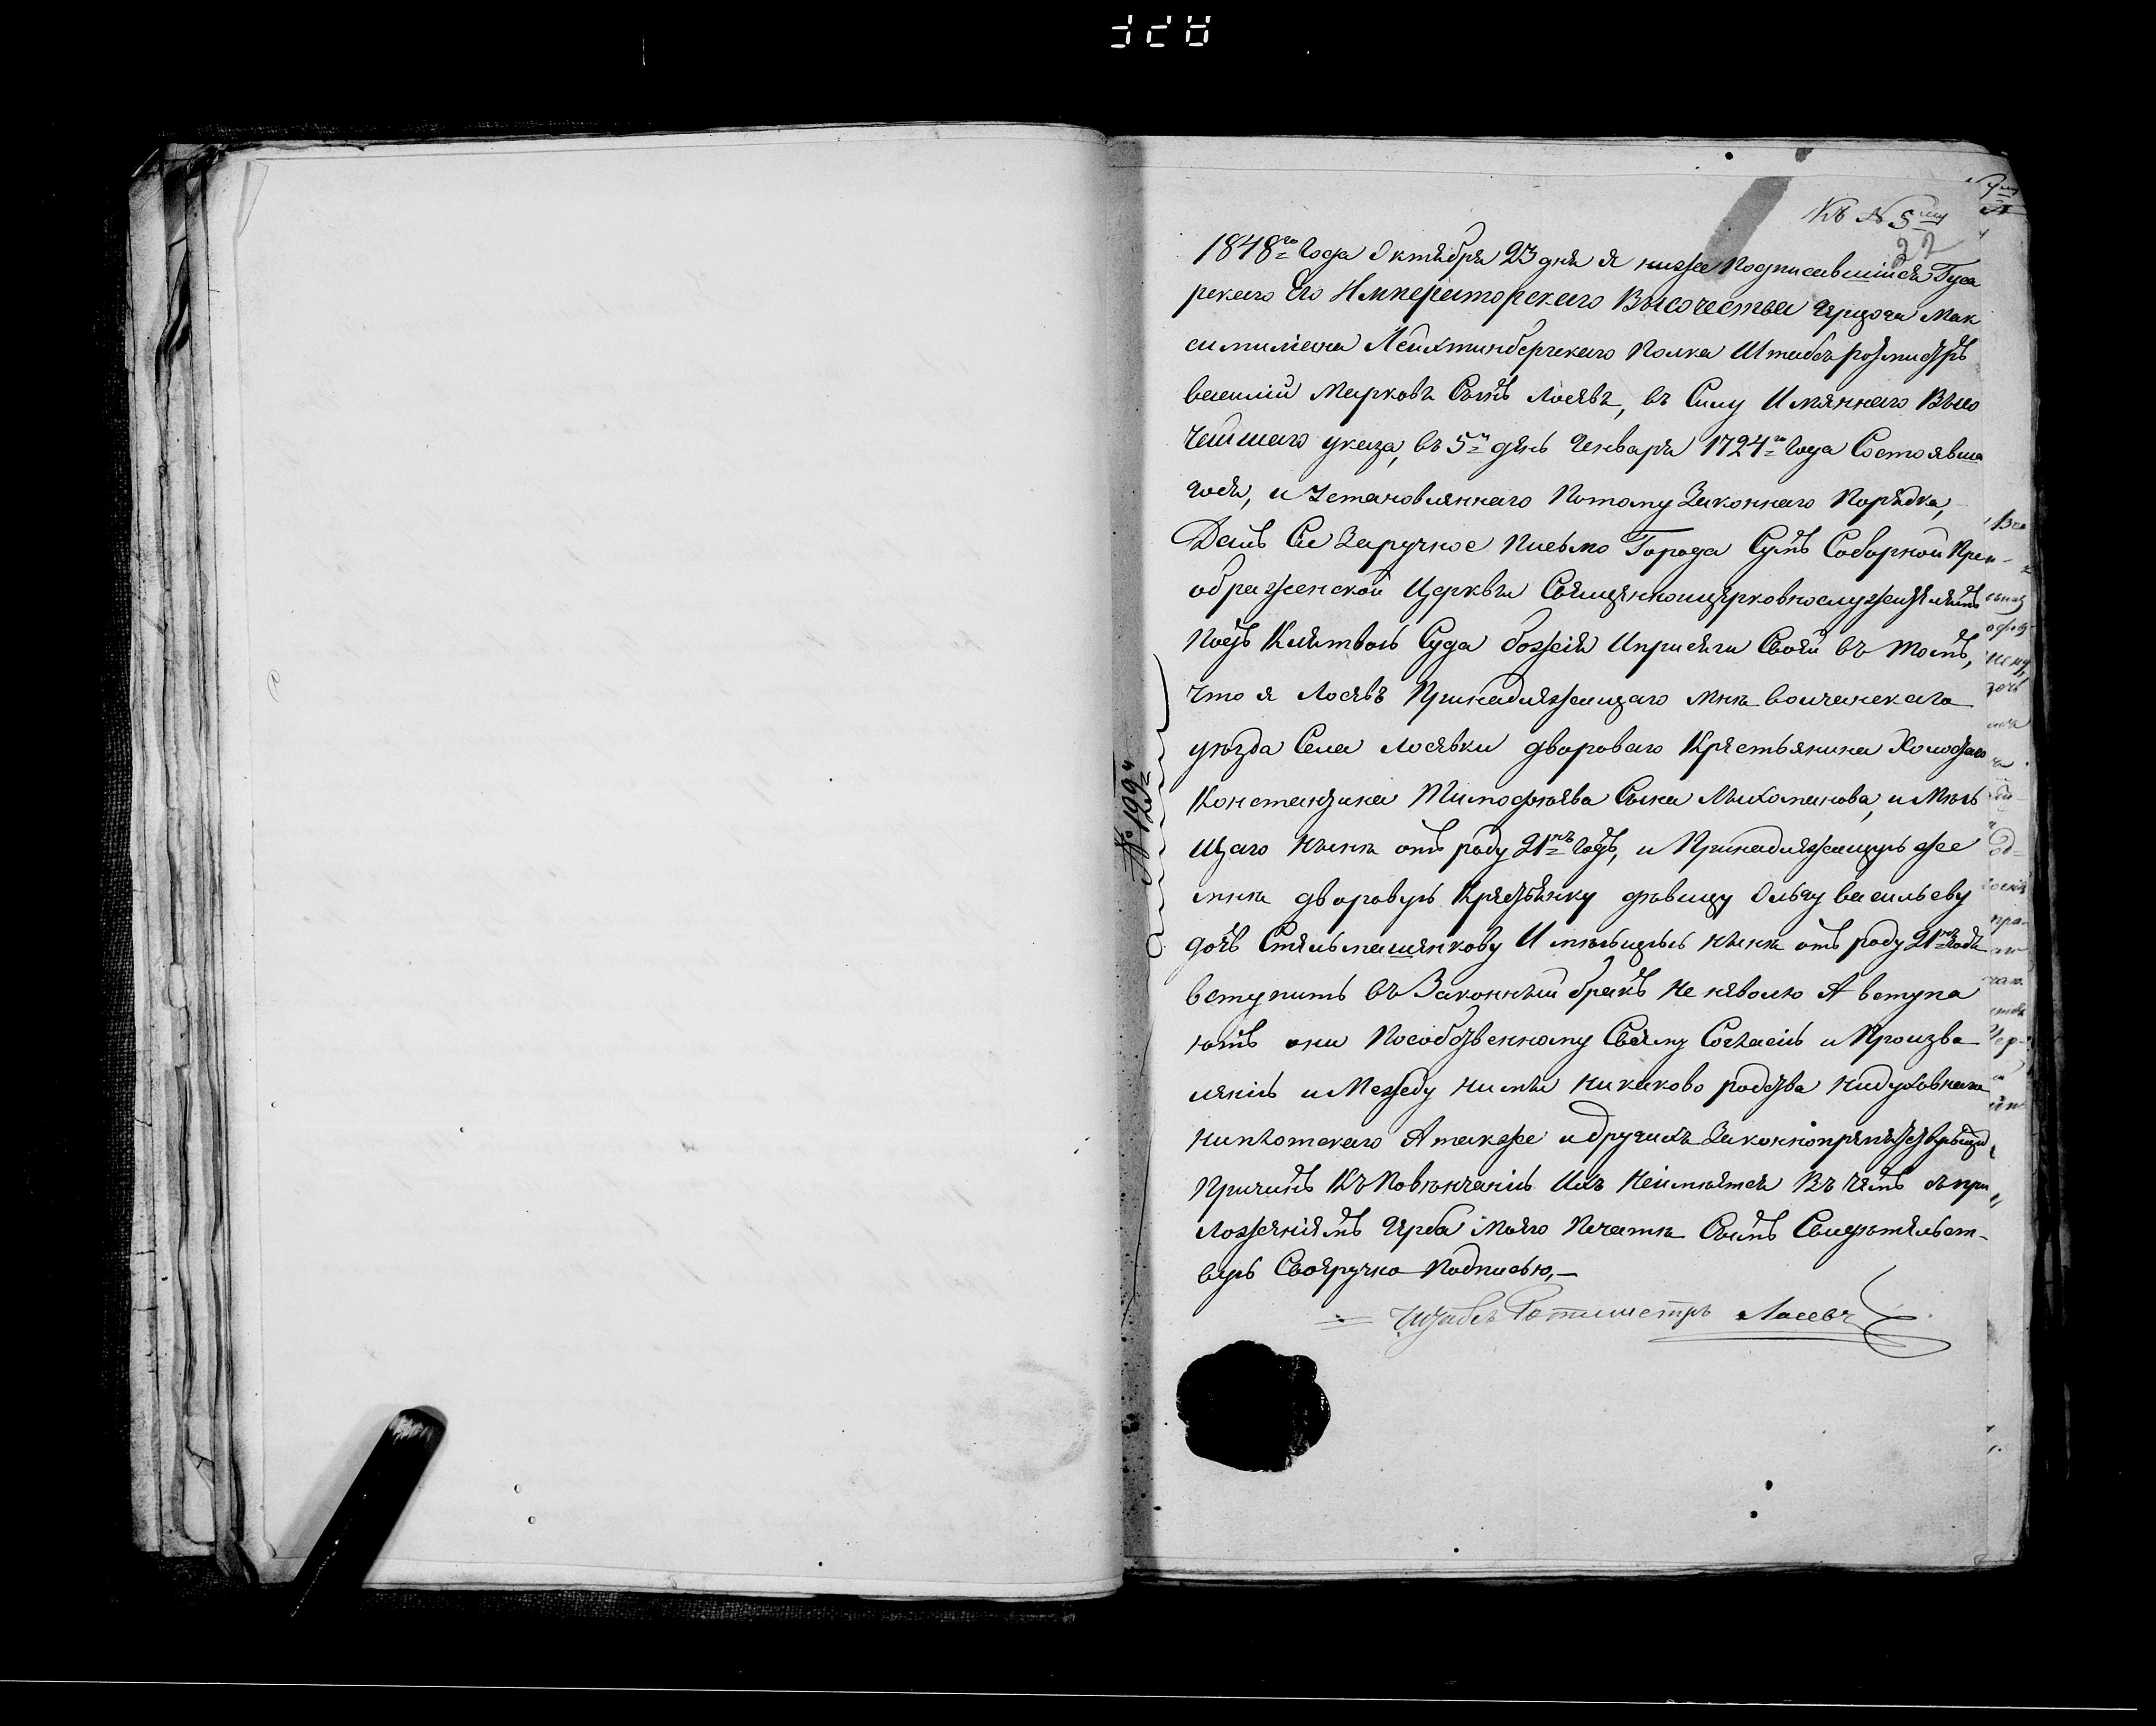 Къ № 5му
22
1848го Года Октября 23 дня я ниже Подписавшійся Гуса
рскаго Его Императорскаго Высочества Герцога Мак
симиліана Лейхтинбергскаго Полка Штабсъ ротмистръ
василій Марковъ Сынъ Лосевъ, въ Силу Имяннаго Высо
чейшаго указа, въ 5й день Генваря 1724го Года Состоявша
гося, и Установленнаго Потому Законнаго Порядка,
Далъ Сіе Заручное Письмо Города Сумъ Соборной Прео-
ображенской Церкви Священноцерковнослужителямъ
Подъ Клятвою Суда божія Иприсяги Своей въ томъ,
что я Лосевъ Принадлежащаго мнѣ волчанскаго
уѣзда Села Лосевки двороваго Крестьянина Холостаго
Константина Тимофѣева Сына Лихоманова, имѣю
щаго нынѣ отъ роду 21нъ Годъ, и Принадлежащую же
мнѣ дворовую Крестьянку дѣвицу Ольгу васильеву
дочь Стельмашенкову Имѣющую нынѣ отъ роду 21нъ Годъ
вступить въ Законный бракъ не неволю А вступа
ютъ они Пособственному Своему Согласію и Произво
ленію и Между ними никаково родства нидуховнаго
ниплотскаго Атакже идругихъ Законнопрепятствующихъ
Причинъ Къ Повѣнчанію Ихъ Неимѣется Въ чемъ съпри
ложеніемъ Герба Моего Печати Симъ Свидѣтельст-
вую Своеручно Подписью,—
Штабсъ Ротмистръ Лосевъ
№ 129й